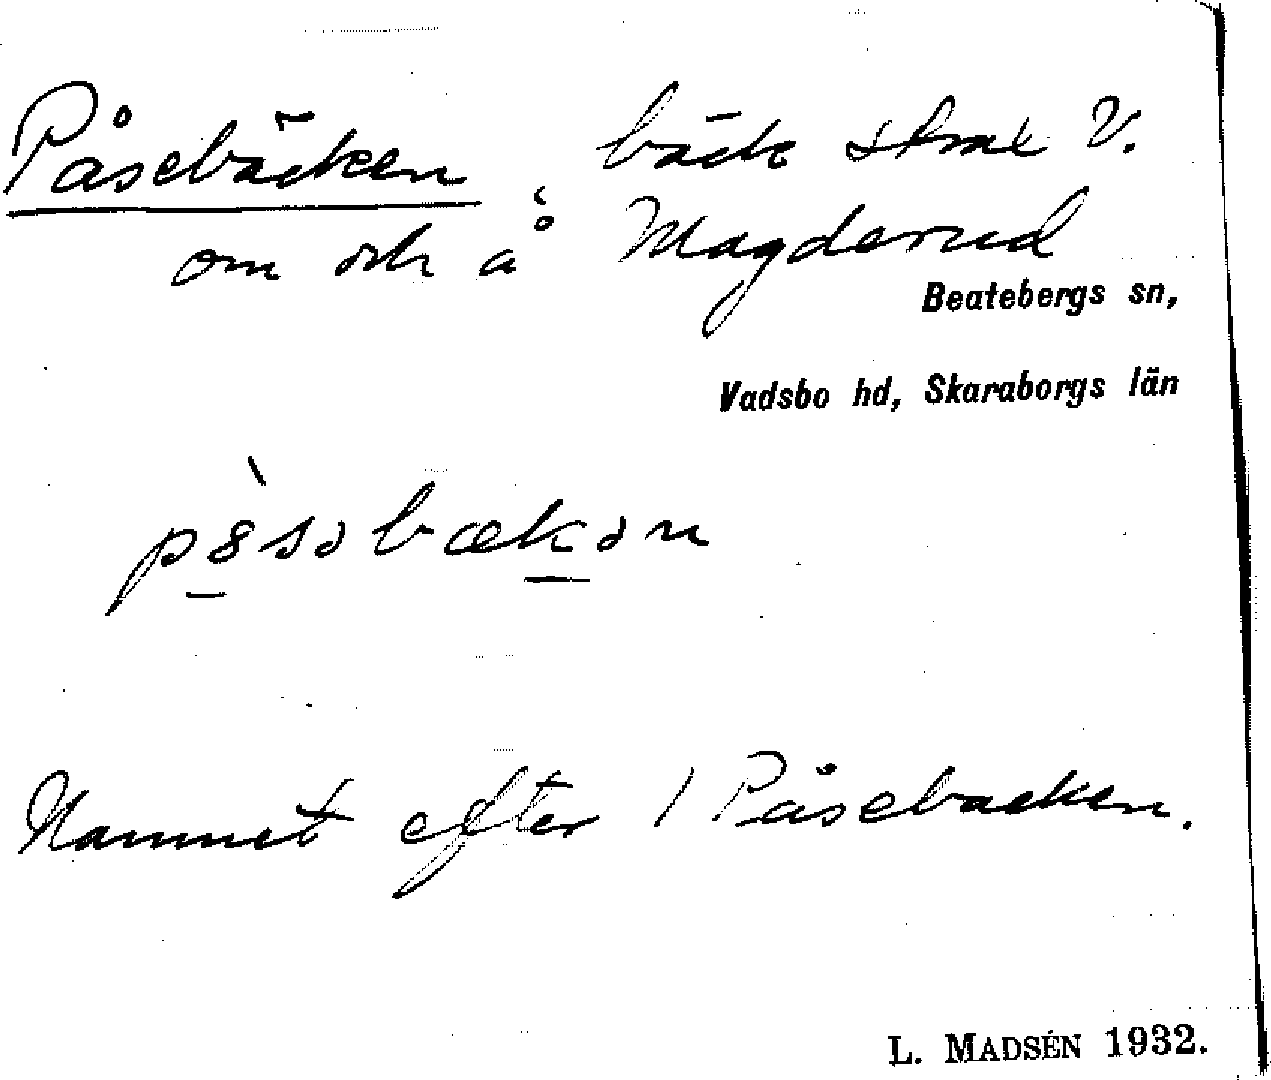 Påsebäcken, bäck strax V.
om och å Magderud
Beatebergs sn,
Vadsbo hd, Skaraborgs län
Namnet efter 1 Påsebacken.
L. MADSÉN 1932.